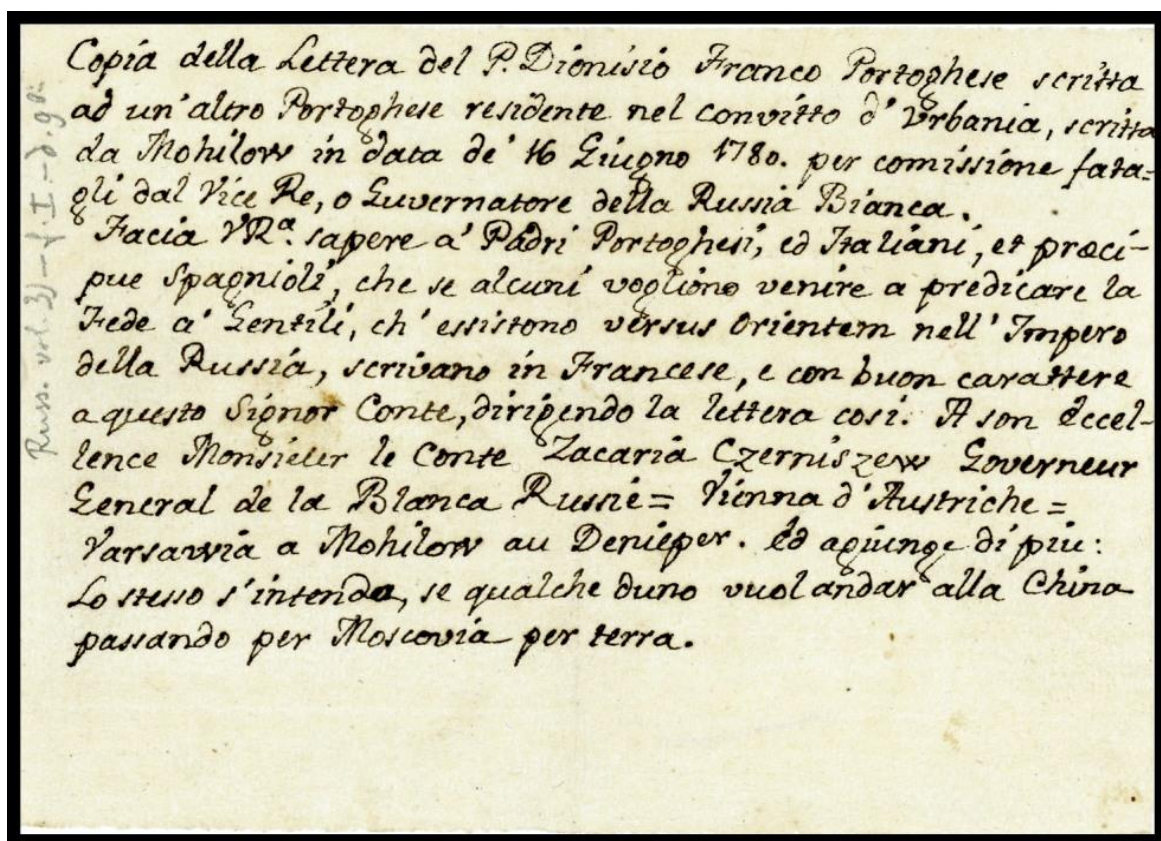 Copia della Lettera del P. Dionisio Franco Portoghese scritta
ad un' altro Portoghese residente nel convitto d' Urbania, scritta
da Mohilow in data de' 16 Giugno 1780. per comissione fata=
gli dal Vice Re, o Guvernatore della Russia Bianca.
Facia VRª. sapere a' Padri Portoghesi, ed Italiani, et præci-
pue Spagnioli, che se alcuni vogliono venire a predicare la
Fede a' Gentili, ch' essistono versus Orientem nell' Impero
della Russia, scrivano in Francese, e con buon carattere
a questo Signor Conte, dirigendo la lettera cosi. A son Eccel-
lence Monsieur le Conte Zacaria Czerniszew Governeur
General de la Blanca Russie = Vienna d' Austriche =
Varsawia a Mohilow au Denieper. Ed agiunge di piu:
Lo stesso s' intenda, se qualche duno vuol andar alla China
passando per Moscovia per terra.
Russ. vol. 3) - f. I. - d. 9